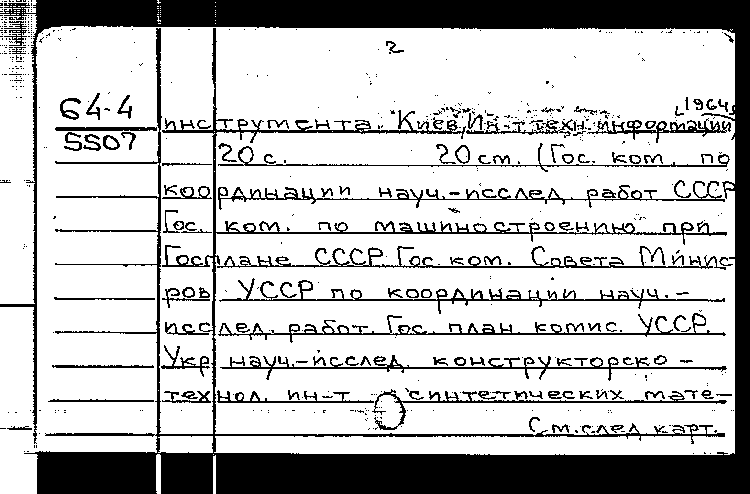 2
64-4
5507
[1964]
инструмента. Киев, Ин-т техн. информации,
20 с. 20 см. (Гос. ком. по
координации науч.-исслед. работ СССР
Гос. ком. по машиностроению при
Госплане СССР. Гос. ком. Совета Минист-
ров УССР по координации науч.-
исслед. работ. Гос. план. комис. УССР.
Укр. науч.-исслед. конструкторско-
технол. ин-т синтетических мате-
См. след. карт.